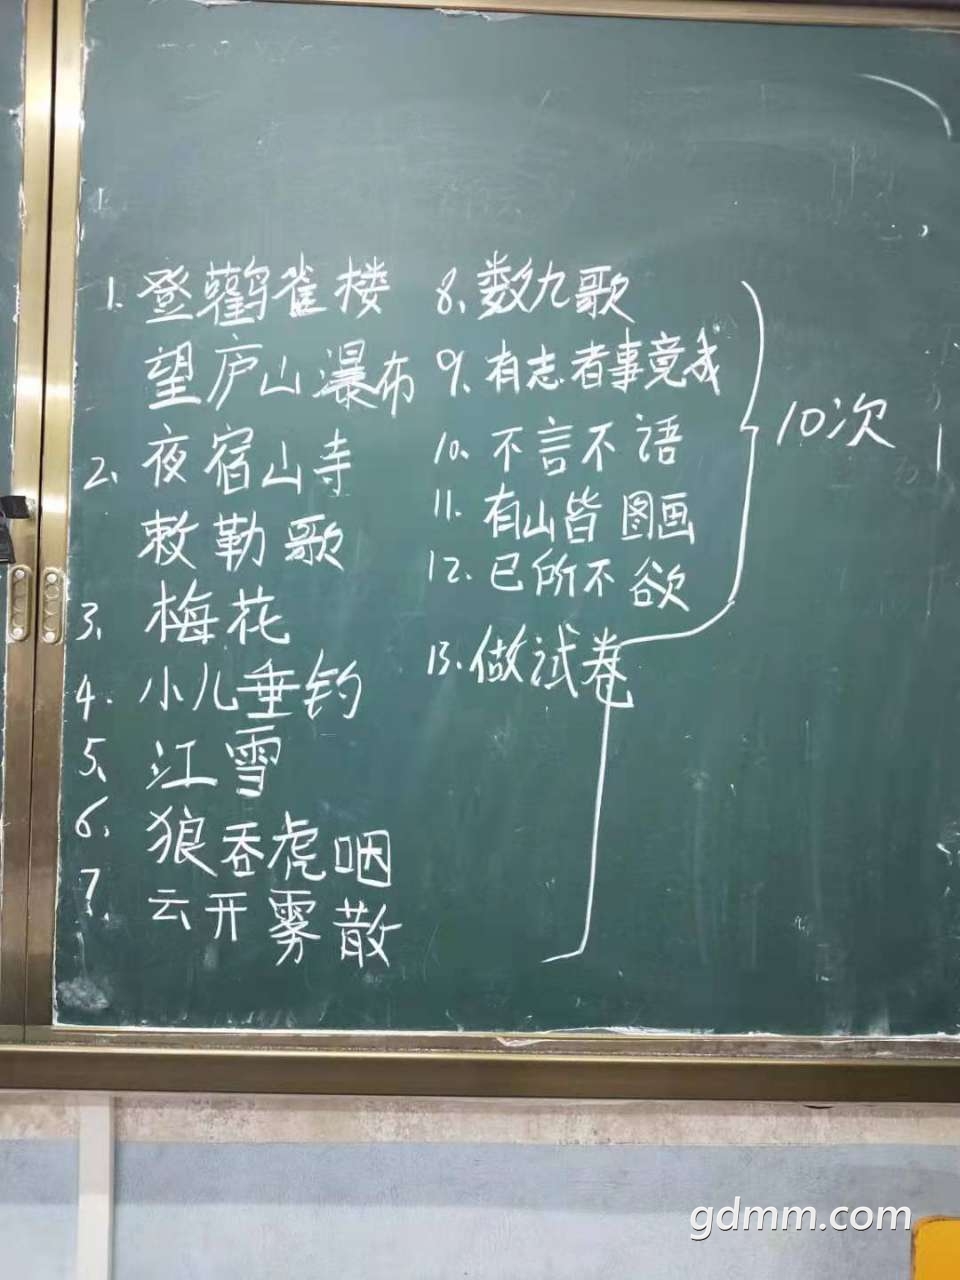 1. 登鹳雀楼
望庐山瀑布
2. 夜宿山寺
敕勒歌
3. 梅花
4. 小儿垂钓
5. 江雪
6. 狼吞虎咽
7. 云开雾散
8. 数九歌
9. 有志者事竟成
10. 不言不语
11. 有山皆图画
12. 已所不欲
13. 做试卷
10次
gdmm.com